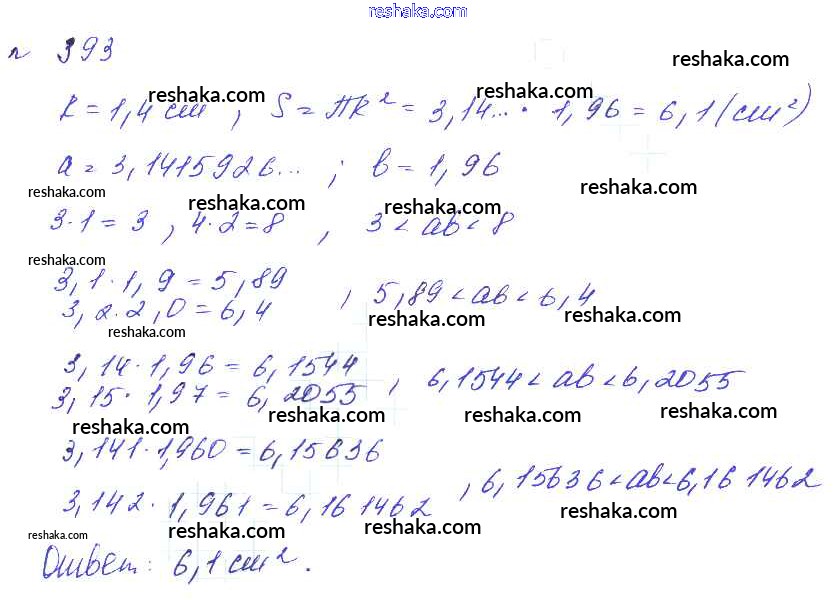 reshaka.com
№ 393
reshaka.com
R = 1,4 см, S = ПR² = 3,14... · 1,96 = 6,1 (см²)
reshaka.com reshaka.com
a = 3,1415926... ; b = 1,96
reshaka.com reshaka.com reshaka.com
3·1 = 3, 4·2 = 8, 3 < ab < 8
reshaka.com
3,1·1,9 = 5,89
3,2·2,0 = 6,4, 5,89 < ab < 6,4
reshaka.com reshaka.com reshaka.com
3,14·1,96 = 6,1544
3,15·1,97 = 6,2055, 6,1544 < ab < 6,2055
reshaka.com reshaka.com reshaka.com reshaka.com
3,141·1,960 = 6,15636
3,142·1,961 = 6,161462, 6,15636 < ab < 6,161462
reshaka.com reshaka.com reshaka.com reshaka.com
Ответ: 6,1 см².